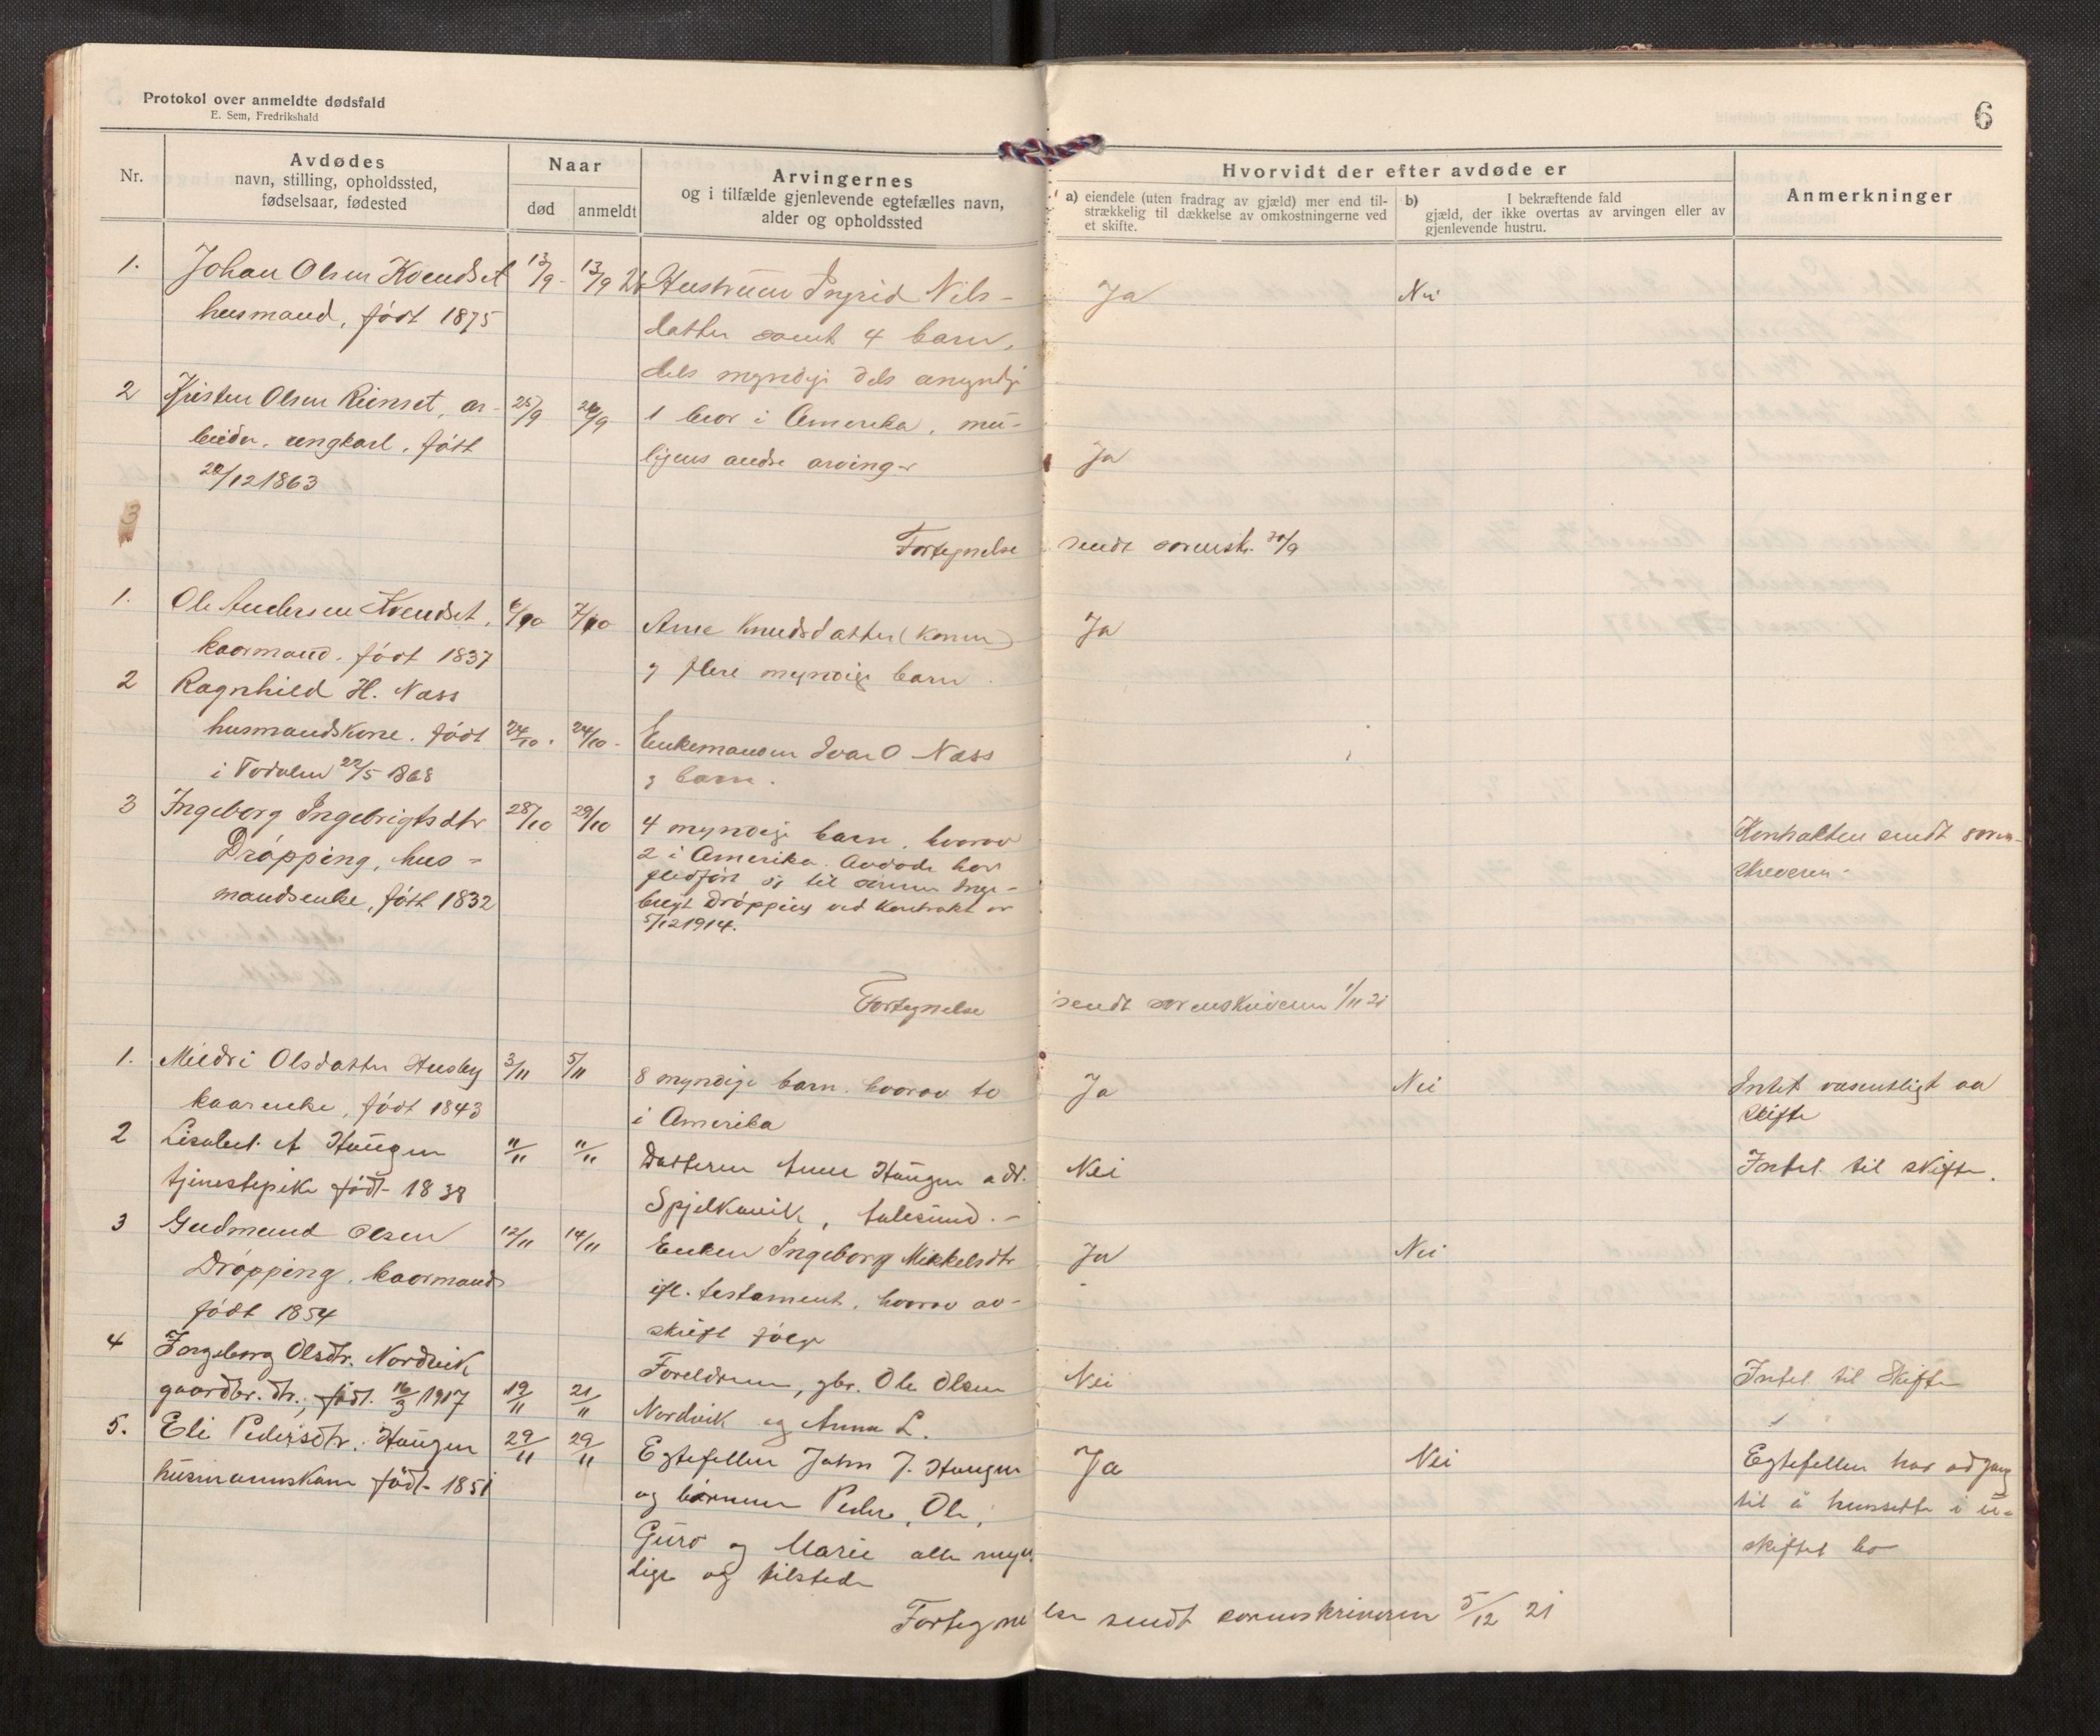 Protokol over anmeldte dødsfald
E. Sem, Fredrikshald
6
Nr.
Avdødes
navn, stilling, opholdssted,
fødselsaar, fødested
Naar
død
anmeldt
Arvingernes
og i tilfælde gjenlevende egtefælles navn,
alder og opholdssted
Hvorvidt der efter avdøde er
a) eiendele (uten fradrag av gjæld) mer end til-
strækkelig til dækkelse av omkostningerne ved
et skifte.
b) I bekræftende fald
gjæld, der ikke overtas av arvingen eller av
gjenlevende hustru.
Anmerkninger
1. Johan Olsen Kvendset 13/9 - 13/9 21 Hustruen Ingrid Nils- Ja Nei
husmand, født 1875
datter samt 4 barn,
dels myndige dels umyndige
2 Kristen Olsen Rinset, ar- 25/9 26/9 1 bror i Amerika, mu-
beider, ungkarl, født
ligens andre arvinger Ja
28/12 1863
3
Fortegnelse sendt sorensk. 30/9
1. Ole Andersen Kvendset, 6/10 7/10 Ane Knudsdatter (konen) Ja
kaarmand, født 1837
og flere myndige barn.
2 Ragnhild H. Næss
husmandskone, født 24/10. 24/10 - Enkemanden Ivar O Næss
i Todalen 22/5 1868
og barn.
3 Ingeborg Ingebrigtsdtr 28/10 29/10 4 myndige barn, hvorav Kontrakten sendt soren-
Drøpping, hus-
2 i Amerika. Avdøde har
skriveren -
fledført sig til sønnen Inge-
mandsenke, født 1832
brigt Drøpping ved kontrakt av
5/12 1914.
Fortegnelse sendt sorenskriveren 1/11 21
1. Mildri Olsdatter Husby 3/11 5/11 8 myndige barn, hvorav to Ja Nei Intet væsentligt aa
kaarenke, født 1843
i Amerika
skifte
2 Lisabet A Haugen 11/11 11/11 Datteren Anne Haugen adr. Nei Intet til skifte.
tjenestepike født 1838
Spjelkavik, Aalesund. -
3 Gudmund Olsen 12/11 14/11 Enken Ingeborg Mikkelsdtr Ja Nei
Drøpping, kaarmand
ifl. testament, hvorav av-
født 1854
skrift følger
4 Ingeborg Olsdtr. Nordvik
Foreldrene, gbr. Ole Olsen Nei Intet til Skifte
gaardbr. dtr., født 16/3 1917 19/11 21/11
Nordvik og Anna L.
5. Eli Pedersdtr. Haugen 29/11 29/11 Egtefellen John J. Haugen Ja Nei Egtefellen har adgang
husmannskone født 1851
og barnene Peder, Ole,
til å hensitte i u-
Guro og Marie alle myn-
skiftet bo
dige og tilstede
Fortegnelse sendt sorenskriveren 5/12 21